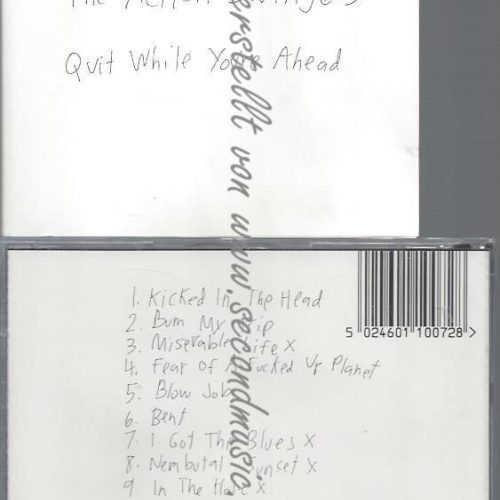 The Action
Quit While You're Ahead
erstellt von www.secondmusic
1. Kicked In The Head
2. Bum My Trip
3. Miserable Life X
4. Fear of A Fucked Up Planet
5. Blow Job
6. Bent
7. I Got The Blues X
8. Nembutal Sunset X
9. In The X
5 024601 100728 >